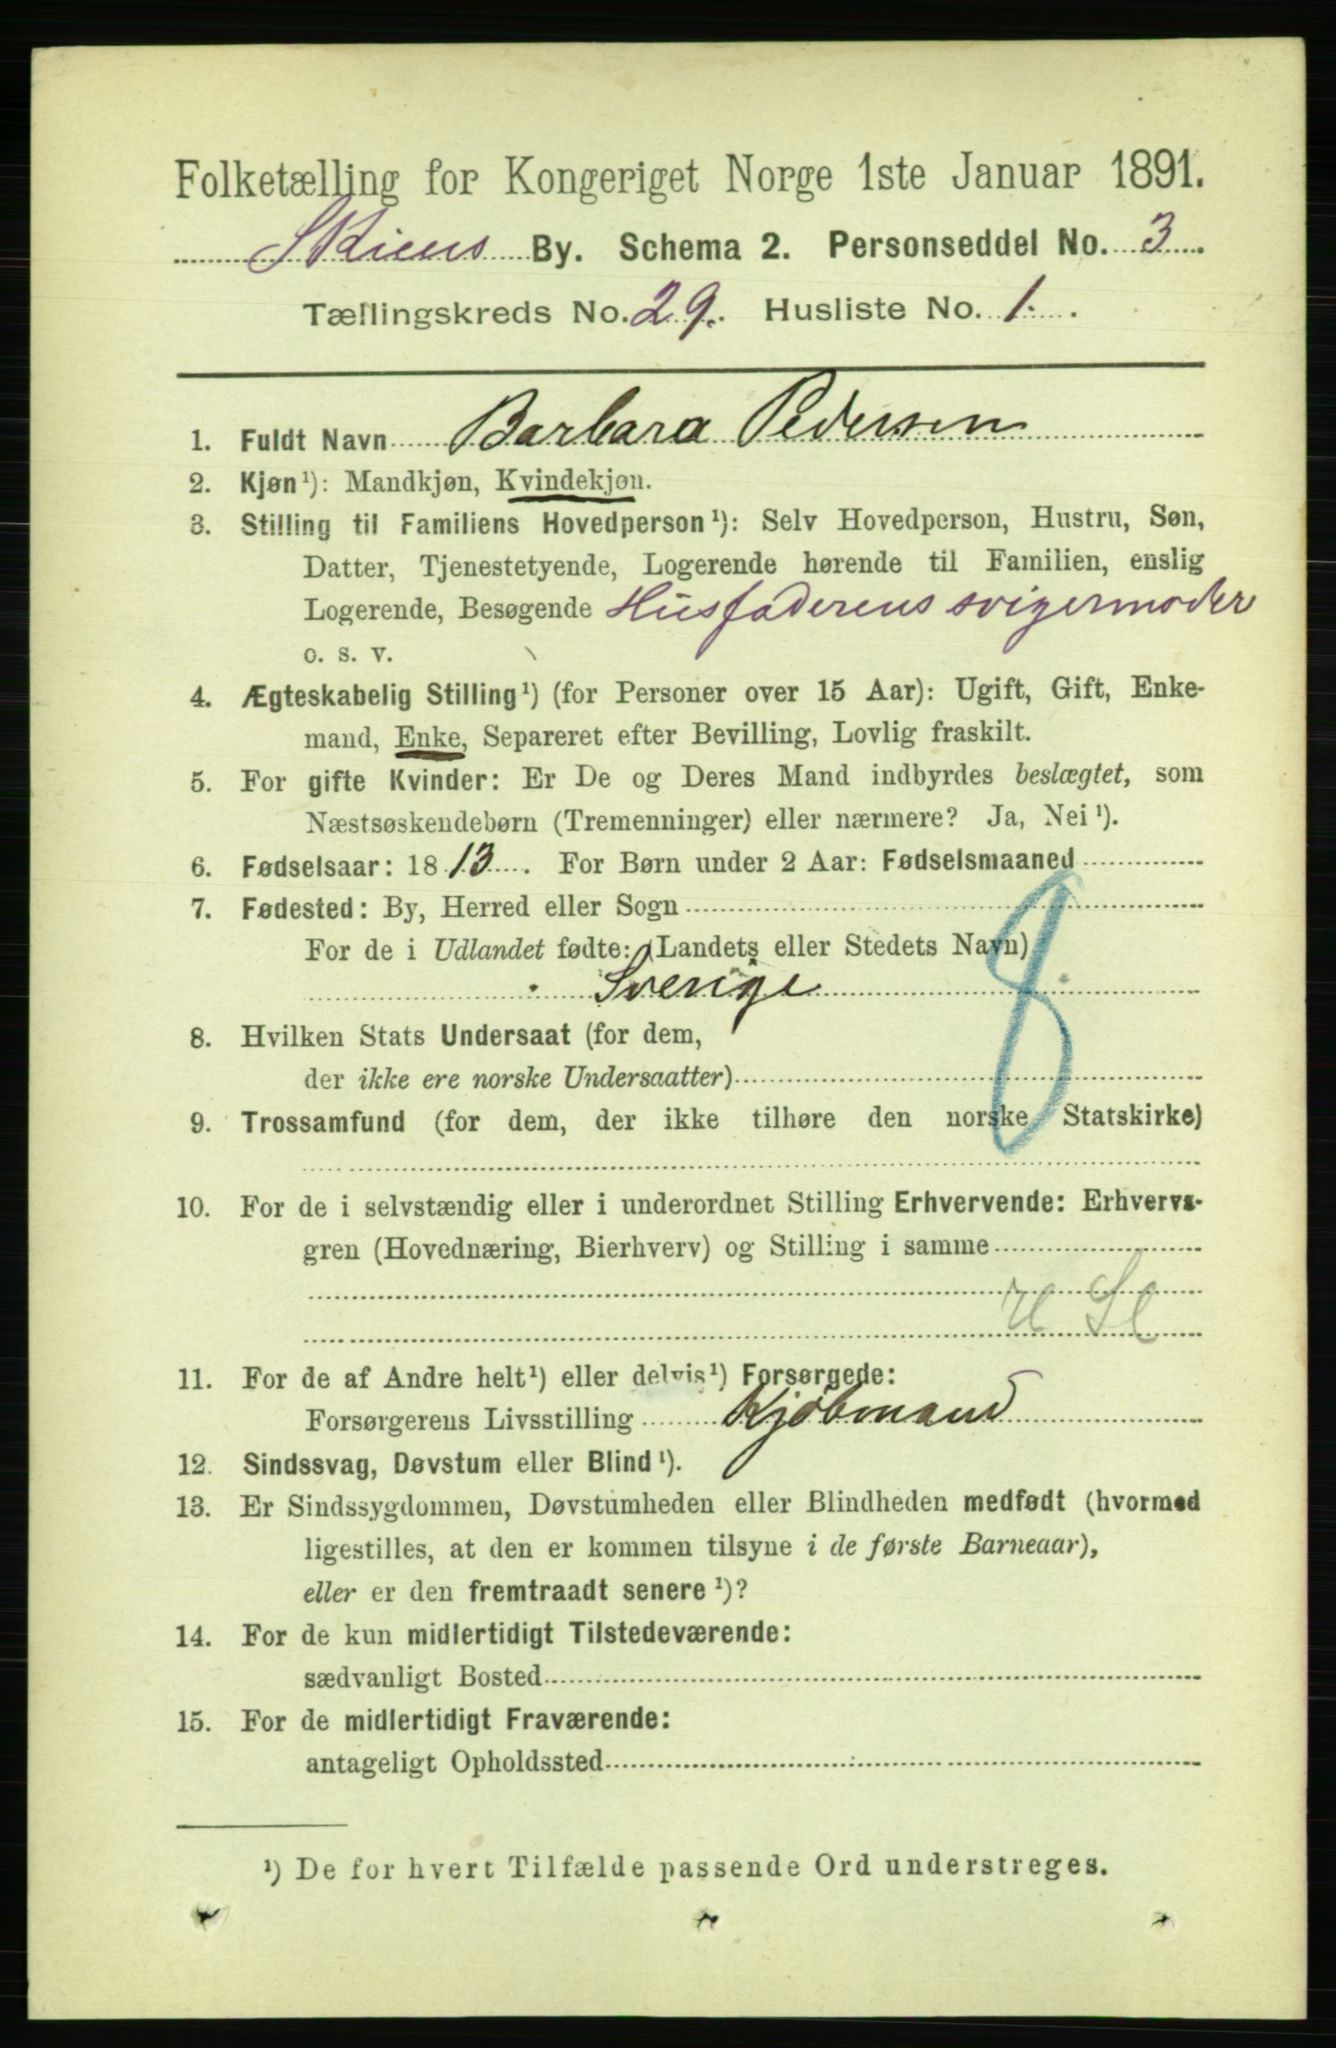 Folketælling for Kongeriget Norge 1ste Januar 1891.
Skiens By. Schema 2. Personseddel No. 3
Tællingskreds No. 29. Husliste No. 1.
1. Fuldt Navn Barbara Pedersen
2. Kjøn¹): Mandkjøn, Kvindekjøn.
3. Stilling til Familiens Hovedperson¹): Selv Hovedperson, Hustru, Søn,
Datter, Tjenestetyende, Logerende hørende til Familien, enslig
Logerende, Besøgende Husfaderens svigermoder
o. s. v.
4. Ægteskabelig Stilling¹) (for Personer over 15 Aar): Ugift, Gift, Enke-
mand, Enke, Separeret efter Bevilling, Lovlig fraskilt.
5. For gifte Kvinder: Er De og Deres Mand indbyrdes beslægtet, som
Næstsøskendebørn (Tremenninger) eller nærmere? Ja, Nei¹).
6. Fødselsaar: 1813. For Børn under 2 Aar: Fødselsmaaned
7. Fødested: By, Herred eller Sogn
For de i Udlandet fødte: (Landets eller Stedets Navn)
Sverige
8
8. Hvilken Stats Undersaat (for dem,
der ikke ere norske Undersaatter)
9. Trossamfund (for dem, der ikke tilhøre den norske Statskirke)
10. For de i selvstændig eller i underordnet Stilling Erhvervende: Erhvervs-
gren (Hovednæring, Bierhverv) og Stilling i samme
11. For de af Andre helt¹) eller delvis¹) Forsørgede:
Forsørgerens Livsstilling Kjøbmand
12. Sindssvag, Døvstum eller Blind¹).
13. Er Sindssygdommen, Døvstumheden eller Blindheden medfødt (hvormed
ligestilles, at den er kommen tilsyne i de første Barneaar),
eller er den fremtraadt senere¹)?
14. For de kun midlertidigt Tilstedeværende:
sædvanligt Bosted
15. For de midlertidigt Fraværende:
antageligt Opholdssted
¹) De for hvert Tilfælde passende Ord understreges.